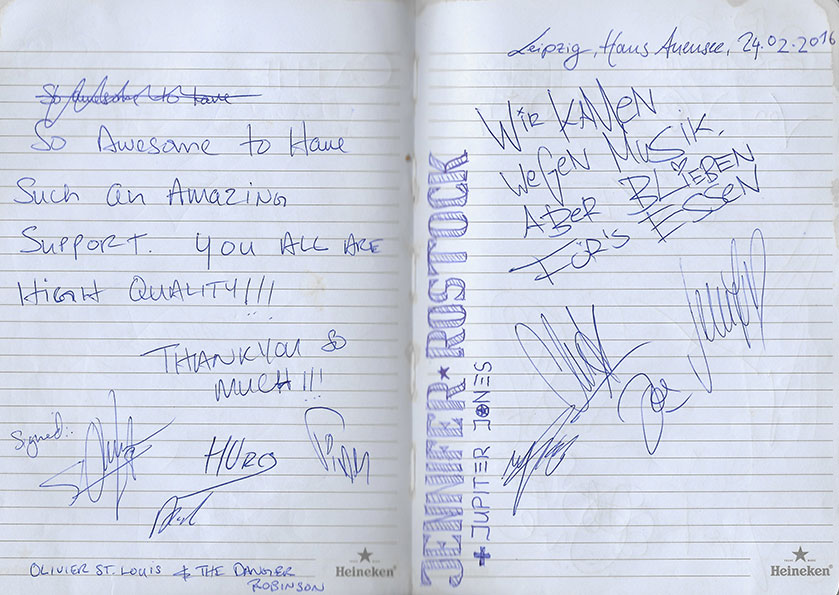 So Awesome to Have
So Awesome to Have
Such an Amazing
Support. You ALL ARE
HIGH QUALITY!!!
THANKYOU SO
MUCH!!!
Signed:
HURO
OLIVIER ST. LOUIS & THE DANGER
ROBINSON
Heineken
Leipzig, Haus Auensee, 24.02.2016
WIR KAMEN
WEGEN MUSIK.
ABER BLIEBEN
FÜR'S ESSEN
Joe
JENNIFER★ROSTOCK
+ JUPITER JONES
Heineken